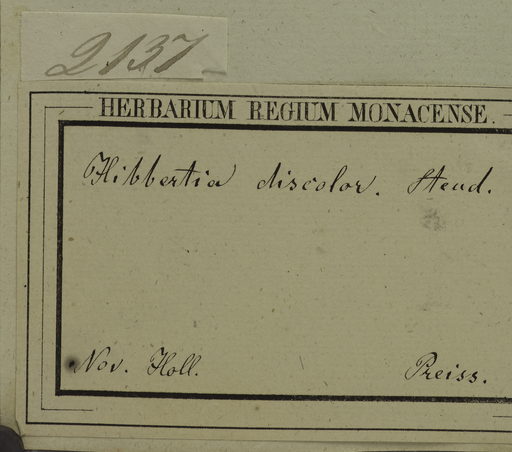 2137
HERBARIUM REGIUM MONACENSE.
Hibbertia discolor. Steud.
Nov. Holl. Preiss.